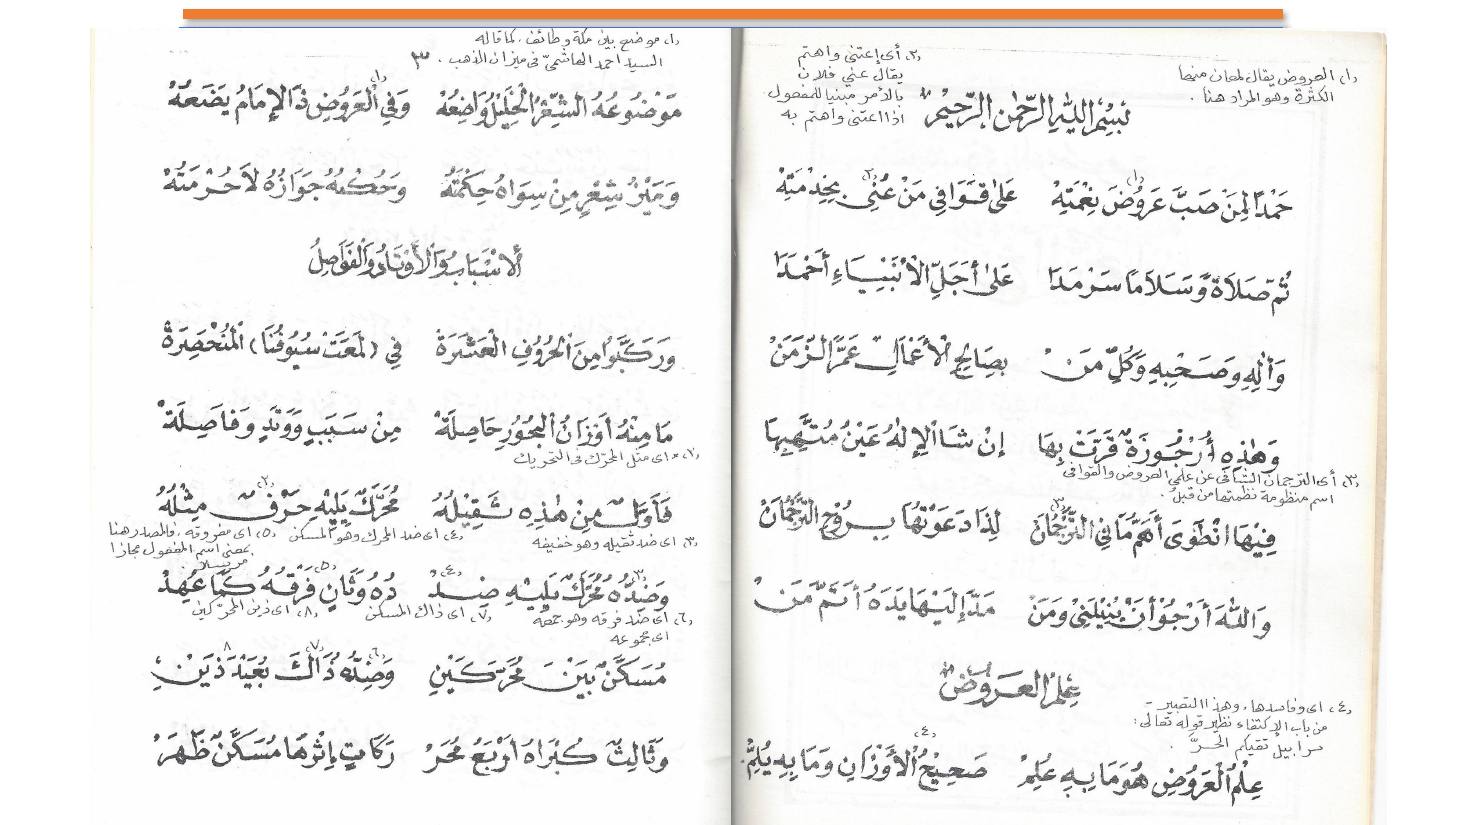 (١) العروض يقال لمعان منها
الكثرة وهو المراد هنا .
(٢) أى إعتنى واهتم
يقال عني فلان
بالأمر مبنيا للمفعول
اذا اعتنى واهتم به
بِسْمِ اللّٰهِ الرَّحْمٰنِ الرَّحِيْمِ
حَمْدًا لِمَنْ صَبَّ عَرُوْضَ (١) نِعْمَتِهْ عَلٰى قَوَافِي مَنْ عُنِي (٢) بِخِدْمَتِهْ
ثُمَّ صَلَاةً وَّسَلَامًا سَرْمَدَا عَلٰى أَجَلِّ الْأَنْبِيَاءِ أَحْمَدَا
وَأٰلِهِ وَصَحْبِهِ وَكُلِّ مَنْ بِصَالِحِ الْأَعْمَالِ عَمَّرَ الزَّمَنْ
وَهٰذِهِ أُرْجُوْزَةٌ قَرَّتْ بِهَا إِنْ شَا الْإِلٰهُ عَيْنُ
(٣) أى الترجمان الشافى عن علمي العروض والقوافى
اسم منظومة نظمتها من قبل .
فِيْهَا انْطَوَى أَهَمُّ مَا فِي التَّرْجُمَانْ (٣) لِذَا دَعَوْتُهَا بِرُوْحِ التَّرْجُمَانْ
وَاللّٰهَ أَرْجُوْ أَنْ يُنِيْلَنِيْ وَمَنْ مَدَّ إِلَيْهَا يَدَهُ أَتَمَّ مَنْ
عِلْمُ الْعَرُوْضِ
(٤) اى وفاسدها، وهذا التعبير
من باب الإكتفاء نظير قوله تعالى :
سرابيل تقيكم الحرّ .
عِلْمُ الْعَرُوْضِ هُوَ مَا بِهِ عُلِمْ صَحِيْحُ (٤) الْأَوْزَانِ وَمَا بِهِ يُلِمْ
٣
(١) موضع بين مكة وطائف . كما قاله
السيد احمد الهاشميّ فى ميزان الذهب .
مَوْضُوْعُهُ الشِّعْرُ الْخَلِيْلُ وَاضِعُهْ وَفِي الْعَرُوْضِ (١) ذَا الْإِمَامُ يَضَعُهْ
وَمَيْزُ شِعْرٍ مِنْ سِوَاهُ حِكْمَتُهْ وَحُكْمُهُ جَوَازُهُ لَا حُرْمَتُهْ
أَلْأَسْبَابُ وَالْأَوْتَادُ وَالْفَوَاصِلُ
وَرَكَّبُوْا مِنَ الْحُرُوْفِ الْعَشَرَةْ فِي (لَمَعَتْ سُيُوْفُنَا) الْمُنْحَصِرَةْ
مَا مِنْهُ أَوْزَانُ الْبُحُوْرِ حَاصِلَةْ مِنْ سَبَبٍ وَوَتَدٍ وَفَاصِلَةْ
(٢) اى مثل المحرّك فى التحريك
فَأَوَّلٌ مِنْ هٰذِهِ ثَقِيْلُهُ مُحَرَّكٌ يَلِيْهِ حَرْفٌ (٢) مِثْلُهُ
(٣) اى ضد ثقيله وهو خفيفه (٤) اى ضد المحرك وهو المسكن (٥) اى مفروقه . فالمصدر هنا
بمعنى اسم المفعول مجازا
مرسلا .
وَضِدُّهُ (٣) مُحَرَّكٌ يَلِيْهِ ضِدْ (٤) دُهُ وَثَانٍ فَرْقُهُ (٥) كَمَا عُهِدْ
(٦) اى ضد فرقه وهو جمعه (٧) اى ذاك المسكن (٨) اى ذين المحرّكين
اى مجموعه
مُسَكَّنٌ بَيْنَ مُحَرَّكَيْنِ وَضِدُّهُ (٦) ذَاكَ (٧) بُعَيْدَ ذَيْنِ ٨
وَثَالِثٌ كُبْرَاهُ أَرْبَعُ مُحَرْ رَكَاتٍ إِثْرَهَا مُسَكَّنٌ ظَهَرْ